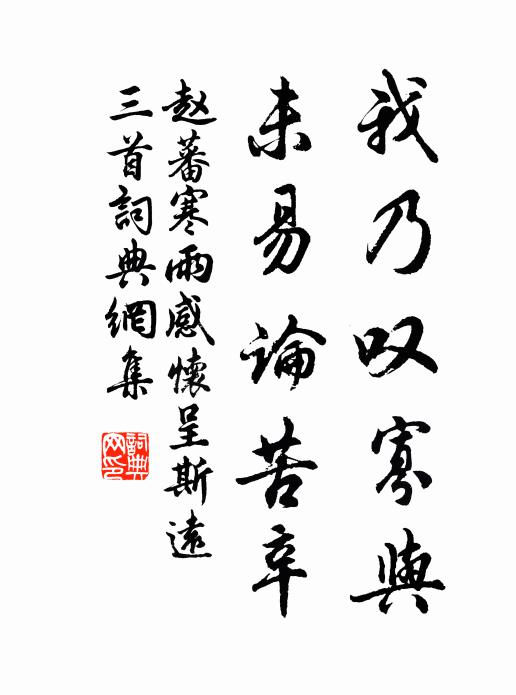 我乃叹寡與
未易論苦辛
赵蕃寒雨感懷呈斯遠
三首詞典網集
詞典网印